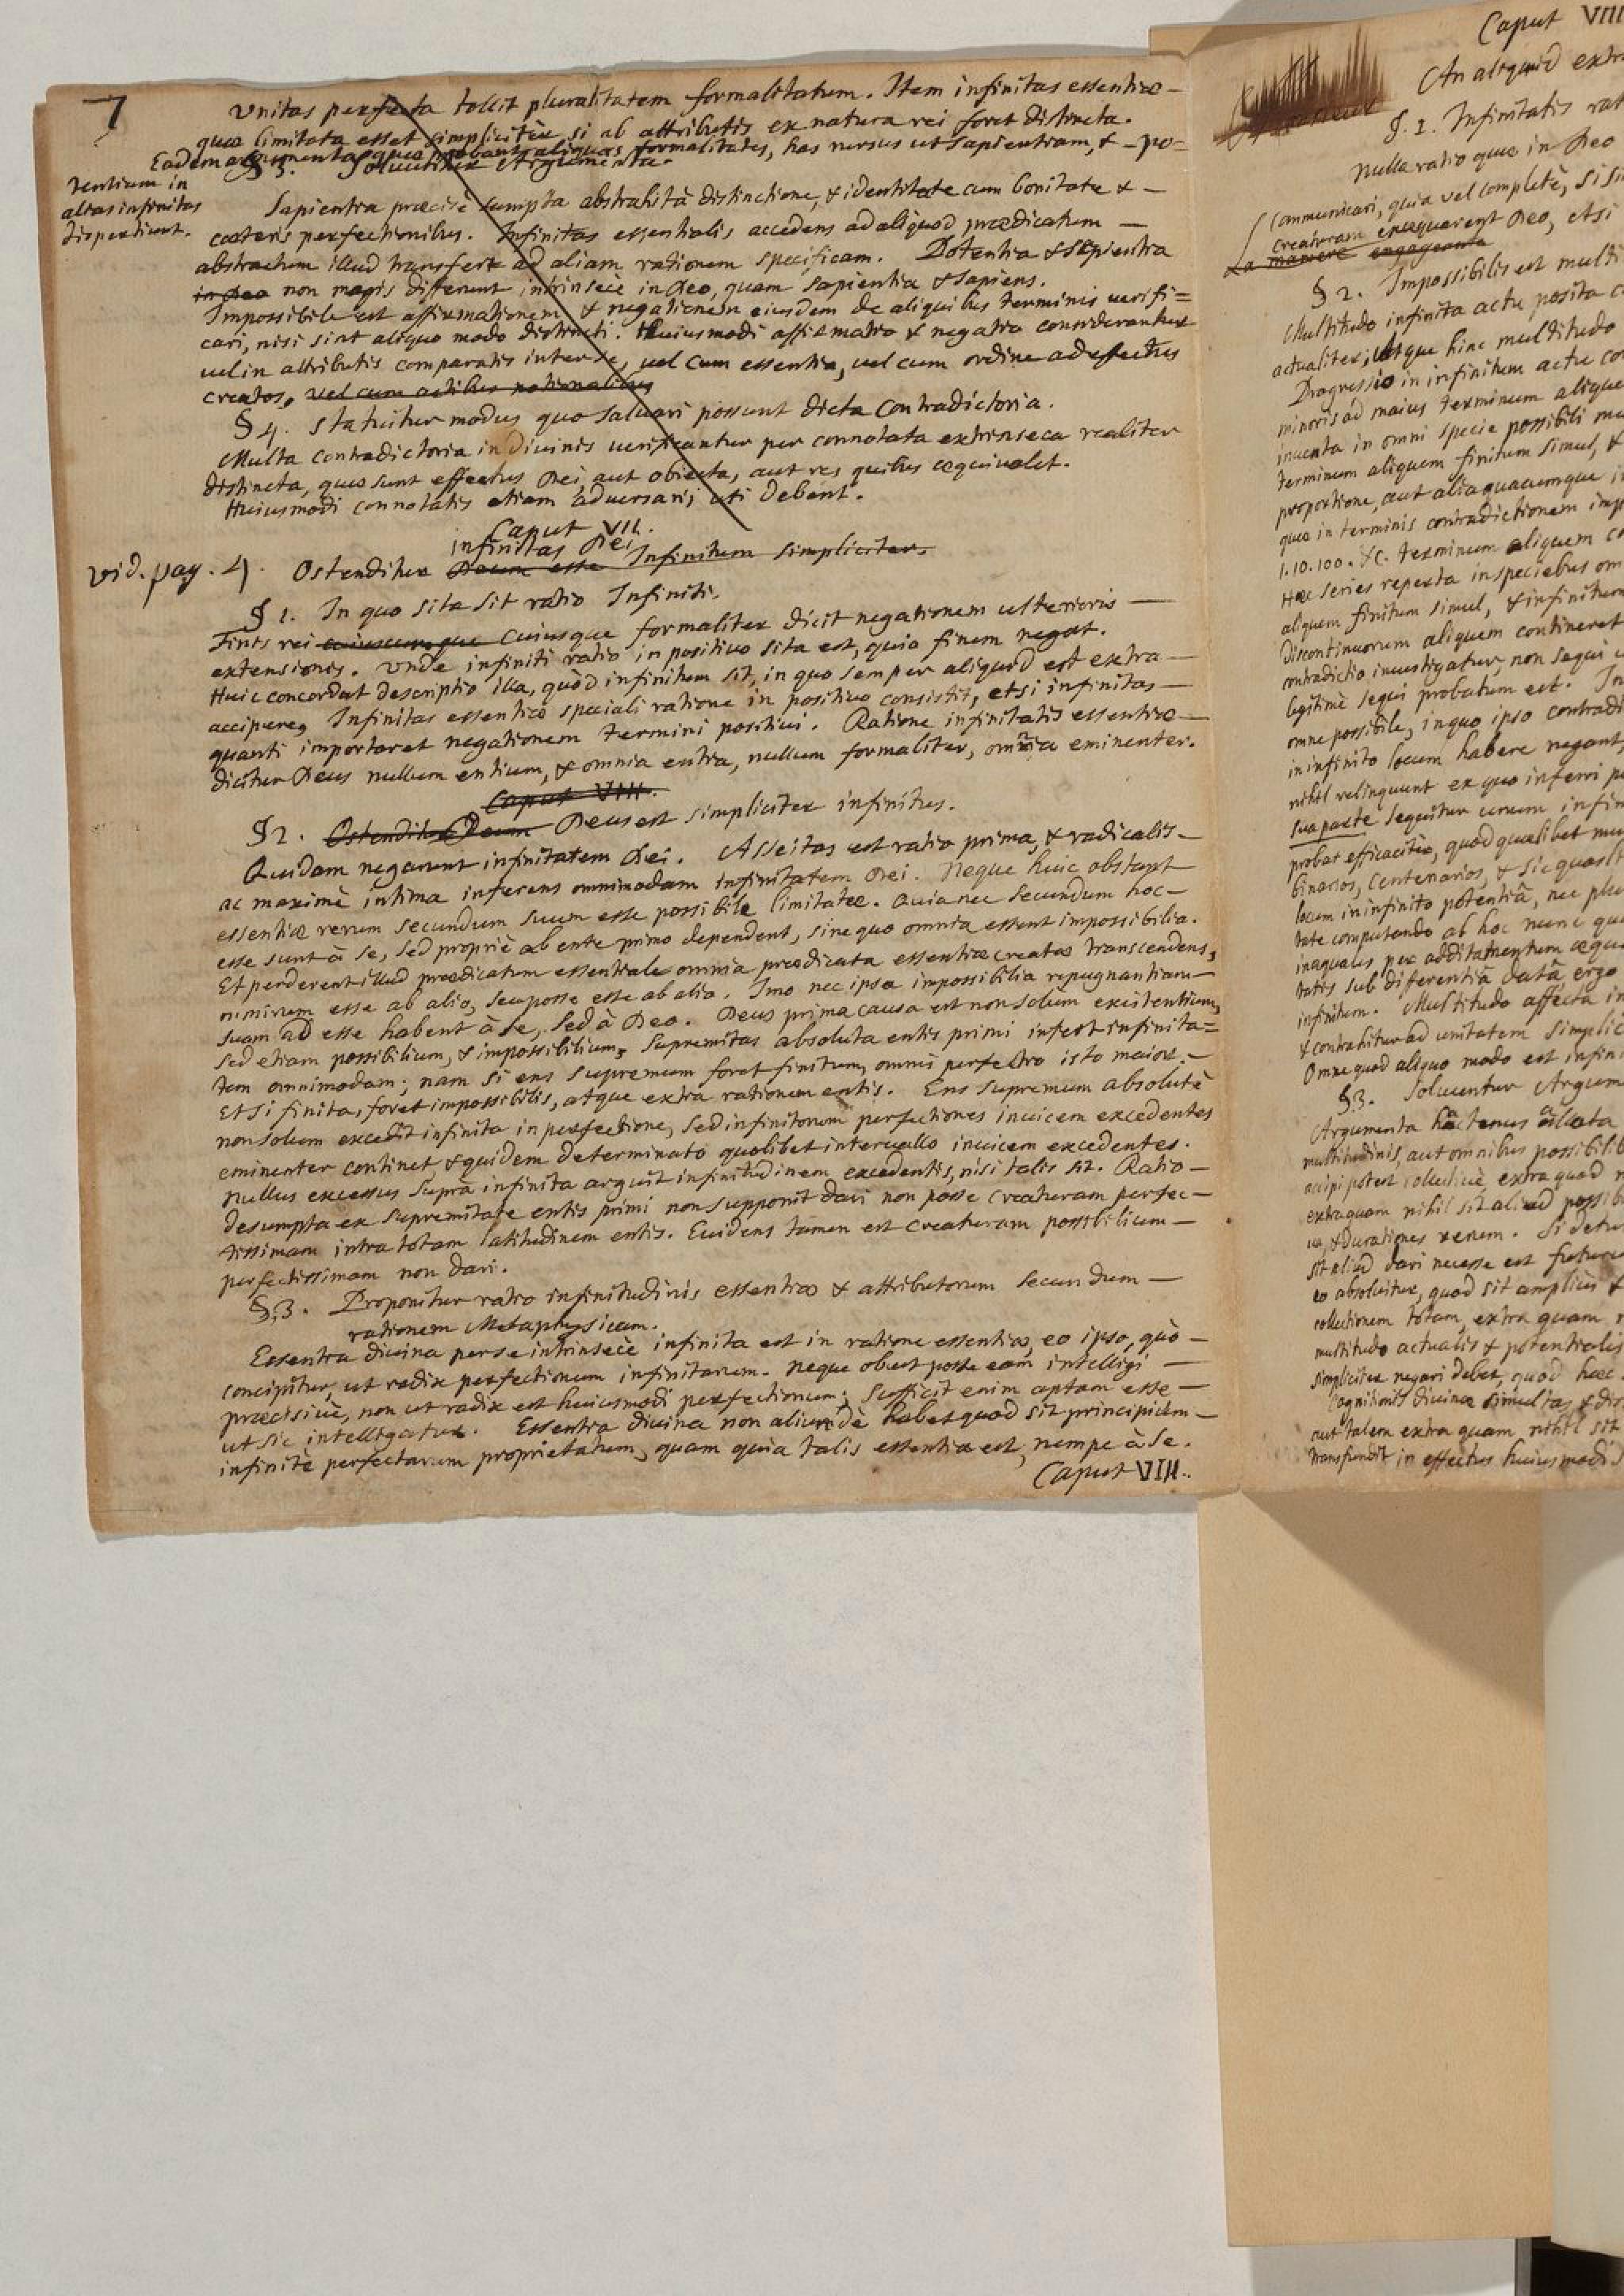 7
Vnitas perfecta tollit pluralitatem formalitatum. Item infinitas essentiæ
quæ limitata esset simplicitèr, si ab attributis ex natura rei foret distincta.
Eadem argumenta quæ probant aliquas formalitates, has rursus ut sapientiam, & po=
tentium in
alias infinitas
dispertiunt.
§ 3. Soluuntur Argumenta.
Sapientia præcisè sumpta abstrahit à distinctione, & identitate cum bonitate &
cæteris perfectionibus. Infinitas essentialis accedens ad aliquod prædicatum
abstractum illud transfert ad aliam rationem specificam. Potentia & sapientia
in Deo non magis differunt intrinsecè in Deo, quam sapientia & sapiens.
Impossibile est affirmationem & negationem eiusdem de aliquibus terminis uerifi=
cari, nisi sint aliquo modo distincti. Huiusmodi affirmatio & negatio considerantur
uel in attributis comparatis inter se, uel cum essentia, uel cum ordine ad effectus
creatos, vel cum actibus notionalibus
§ 4. Statuitur modus quo saluari possunt dicta contradictoria.
Multa contradictoria in diuinis uerificantur per connotata extrinseca realiter
distincta, quæ sunt effectus Dei, aut obiecta, aut res quibus æquiualet.
Huiusmodi connotatis etiam aduersarij uti debent.
Caput VII.
infinitas Dei
vid. pag. 4. Ostenditur Deum esse Infinitum simpliciter.
§ 1. In quo sita sit ratio Infiniti.
Finis rei cuiuscumque cuiusque formaliter dicit negationem ulterioris
extensionis. Vnde infiniti ratio in positiuo sita est, quia finem negat.
Huic concordat descriptio illa, quòd infinitum sit, in quo semper aliquid est extra
accipere, Infinitas essentiæ speciali ratione in positiuo consistit, etsi infinitas
quanti importaret negationem termini positiui. Ratione infinitatis essentiæ
dicitur Deus nullum entium, & omnia entia, nullum formaliter, omnia eminenter.
Caput VIII.
§ 2. Ostenditur Deum Deus est simpliciter infinitus.
Quidam negarunt infinitatem Dei. Asseitas est ratio prima, & radicalis
ac maximè intima inferens omnimodam infinitatem Dei. Neque huic obstant
essentiæ rerum secundum suum esse possibile limitatæ. Quia nec secundum hoc
esse sunt à se, sed propriè ab ente primo dependent, sine quo omnia essent impossibilia.
Et perderent illud prædicatum essentiale omnia prædicata essentiæ creatæ transcendens,
nimirum esse ab alio, seu posse esse ab alio. Imo nec ipsa impossibilia repugnantiam
suam ad esse habent à se, sed à Deo. Deus prima causa est non solum existentium,
sed etiam possibilium, & impossibilium, Supremitas absoluta entis primi infert infinita=
tem omnimodam; nam si ens supremum foret finitum, omnis perfectio isto maior.
Etsi finita, foret impossibilis, atque extra rationem entis. Ens supremum absolutè
non solum excedit infinita in perfectione, sed infinitorum perfectiones inuicem excedentes
eminenter continet & quidem determinato quolibet interuallo inuicem excedentes.
Nullus excessus suprà infinita arguit infinitudinem excedentis, nisi talis sit. Ratio
desumpta ex supremitate entis primi non supponit dari non posse creaturam perfec
tissimam intra totam latitudinem entis. Euidens tamen est creaturam possibilium
perfectissimam non dari.
§ 3. Proponitur ratio infinitudinis essentiæ & attributorum secundum
rationem Metaphysicam.
Essentia diuina per se intrinsecè infinita est in ratione essentiæ, eo ipso, quò
concipitur, ut radix perfectionum infinitarum. Neque obest posse eam intelligi
præcisiuè, non ut radix est huiusmodi perfectionum; sufficit enim aptam esse
ut sic intelligatur. Essentia diuina non aliundè habet quod sit principium
infinitè perfectarum proprietatum, quam quia talis essentia est, nempe à se.
Caput VIII.
Caput VIII
An aliquid extr
§. 1. Infinitatis rat
Nulla ratio quæ in Deo
Communicari, quia vel completè, si si
creaturam exæquarent Deo, etsi
La maniere engageante
§ 2. Impossibilis est multi
Multitudo infinita actu posita c
actualiter; Atque hinc multitudo
Progressio in infinitum actu co
minoris ad maius terminum alique
inuenta in omni specie possibili mu
terminum aliquem finitum simul, &
proportione, aut alia quacumque i
quæ in terminis contradictionem imp
1. 10. 100. &c. terminum aliquem co
Hæc series reperta in speciebus om
aliquem finitum simul, & infinitum
discontinuorum aliquem contineret
contradictio inuestigatur, non sequi u
legitimè sequi probatum est. In
omne possibile, in quo ipso contradi
in infinito locum habere negant,
nihil relinquunt ex quo inferri p
sua parte sequitur unum infin
probat efficaciter, quod quælibet mu
binarios, centenarios, & sic quasli
locum in infinito potentiâ, nec plu
tate computando ab hoc nunc qu
inæquales per additamentum æqua
tatis sub differentiâ datâ ergo
infinitum. Multitudo affecta in
& contrahitur ad unitatem simplic
Omne quod aliquo modo est infini
§3. Soluuntur Argum
Argumenta hactenus allata
multitudinis, aut omnibus possibilib
accipi potest collectiuè, extra quod n
extra quam nihil sit aliud possibi
& durationes rerum. Si detur
sit aliud dari necesse est futuru
eo absoluitur, quod sit amplius &
collectionem totam, extra quam n
multitudo actualis & potentialis
simpliciter negari debet, quod hæc
Cognitionis diuinæ simultas, & dis
aut talem extra quam nihil sit
transfundit in effectus huiusmodi s